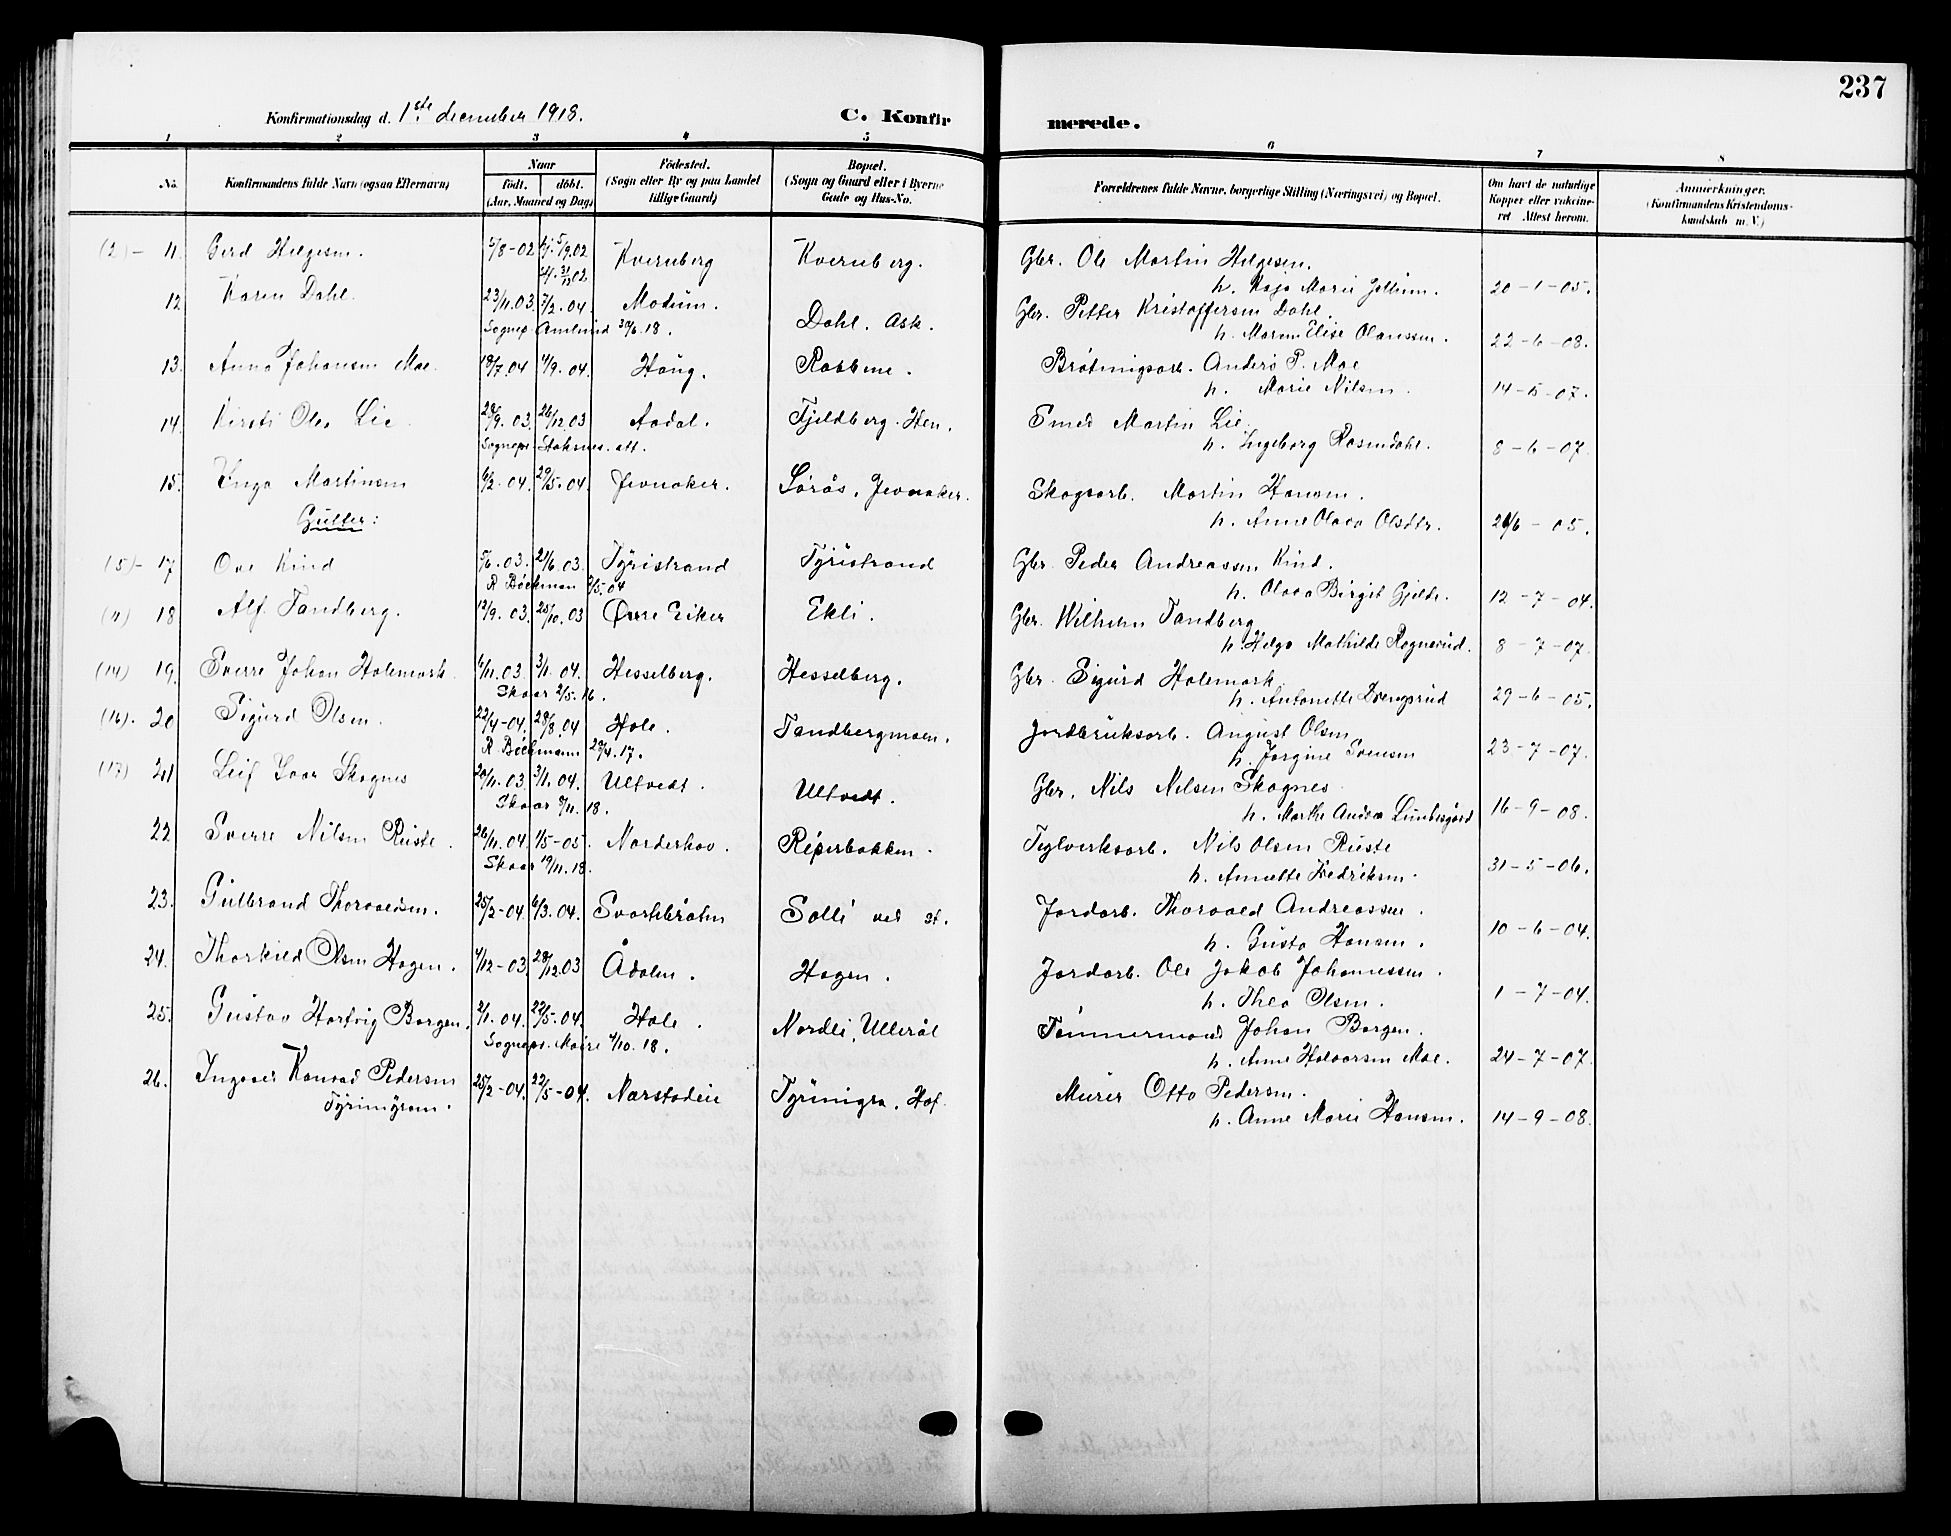 237
Konfirmationsdag d. 1ste december 1918. C. Konfir merede.
1 2 3 4 5 6 7 8
No. Konfirmandens fulde Navn (ogsaa Efternavn) Naar født. døbt. (Aar, Maaned og Dag) Födested. (Sogn eller By og paa Landet tillige Gaard) Bopæl. (Sogn og Gaard eller i Byerne Gade og Hus-No. Forældrenes fulde Navne, borgerlige Stilling (Næringsvei) og Bopæl. Om havt de naturlige Kopper eller vakcineret Attest herom. Anmærkninger. (Konfirmandens Kristendomskundskab m. V.)
(2) - 11. Gerd Helgesen. 5/8-02 5/9.02 Kvernberg Kvernberg. Gbr. Ole Martin Helgesen.
h. Kaja Marie Jellum. 20-1-05.
12 Karen Dahl. 23/11.03. 7/2.04. Modum. Dahl. Ask. Gbr. Petter Kristoffersen Dahl.
Sognepr. Amlund 30/6.18. h. Maren Elise Olaussen. 22-6-08.
13. Anna Johansen Moe. 18/7.04 4/9.04. Haug. Rabbene. Brøtningsarb. Anders P. Moe
h. Marie Nilsen. 14-5-07.
14. Kirsti Olea Lie. 28/9.03. 26/12.03 Aadal. Fjeldberg. Hen. Smed Martin Lie.
Sognepr. Stoksnes. att. h. Ingeborg Rosendahl. 8-6-07
15. Inga Martinsen 6/2.04. 29/5.04. Jevnaker. Sørås, Jevnaker. Skogsarb. Martin Hansen.
Gutter: h. Anne Olava Olsdtr. 21/6-05.
(5) - 17 Ove Kind 5/6.03. 21/6.03. Tyristrand Tyristrand Gbr. Peder Andreassen Kind.
R. Bøckman 3/5.04 h. Olava Birgit Gjelde. 12-7-04.
(11) 18 Alf Tandberg. 12/9.03. 25/10.03 Øvre Eiker Ekli. Gbr. Wilhelm Tandberg
h. Helga Mathilde Rognerud. 8-7-07.
(14) 19. Sverre Johan Holemark. 6/11.03 3/1.04. Hesselberg. Hesselberg. Gbr. Sigurd Holemark
Skaar 2/5.16. h. Antonette Drengsrud 29-6-05.
(16). 20 Sigurd Olsen. 22/4-04. 28/8.04 Hole. Tandbergmoen. Jordbruksarb. August Olsen
R. Bøckmann 29/4.17. h. Jørgine Svensen 23-7-07.
(17) 21 Leif Ivar Skognes 20/11.03 3/1.04. Ultvedt. Ultvedt. Gbr. Nils Nilsen Skognes
Skaar 9/11.18. h. Marthe Andrea Lundesgård 16-9-08.
22 Sverre Nilsen Ruste. 26/11.04. 1/5-05. Norderhov. Reperbakken. Teglverksarb. Nils Olsen Ruste
Skaar 19/11.18. h. Anette Fredriksen. 31-5-06.
23. Gulbrand Thorvaldsen. 25/2-04 6/3.04. Svartebråten Solli ved st. Jordarb. Thorvald Andreassen.
h. Gusta Hansen. 10-6-04.
24. Thorkild Olsen Hagen. 4/12-03. 28/12.03 Ådalen. Hagen. Jordarb. Ole Jakob Johannessen.
h. Thea Olsen. 1-7-04.
25. Gustav Hartvig Borgen. 2/1.04. 22/5.04. Hole. Nordli, Ullerål Tømmermand Johan Borgen.
Sognepr. Moire 4/10.18. h. Anne Halvorsen Moe. 24-7-07.
26. Ingvar Konrad Pedersen 25/2-04 22/5-04. Nærstadeie Tyrimyra. Hof. Murer Otto Pedersen.
Tyrimyren. h. Anne Marie Hansen. 14-9-08.